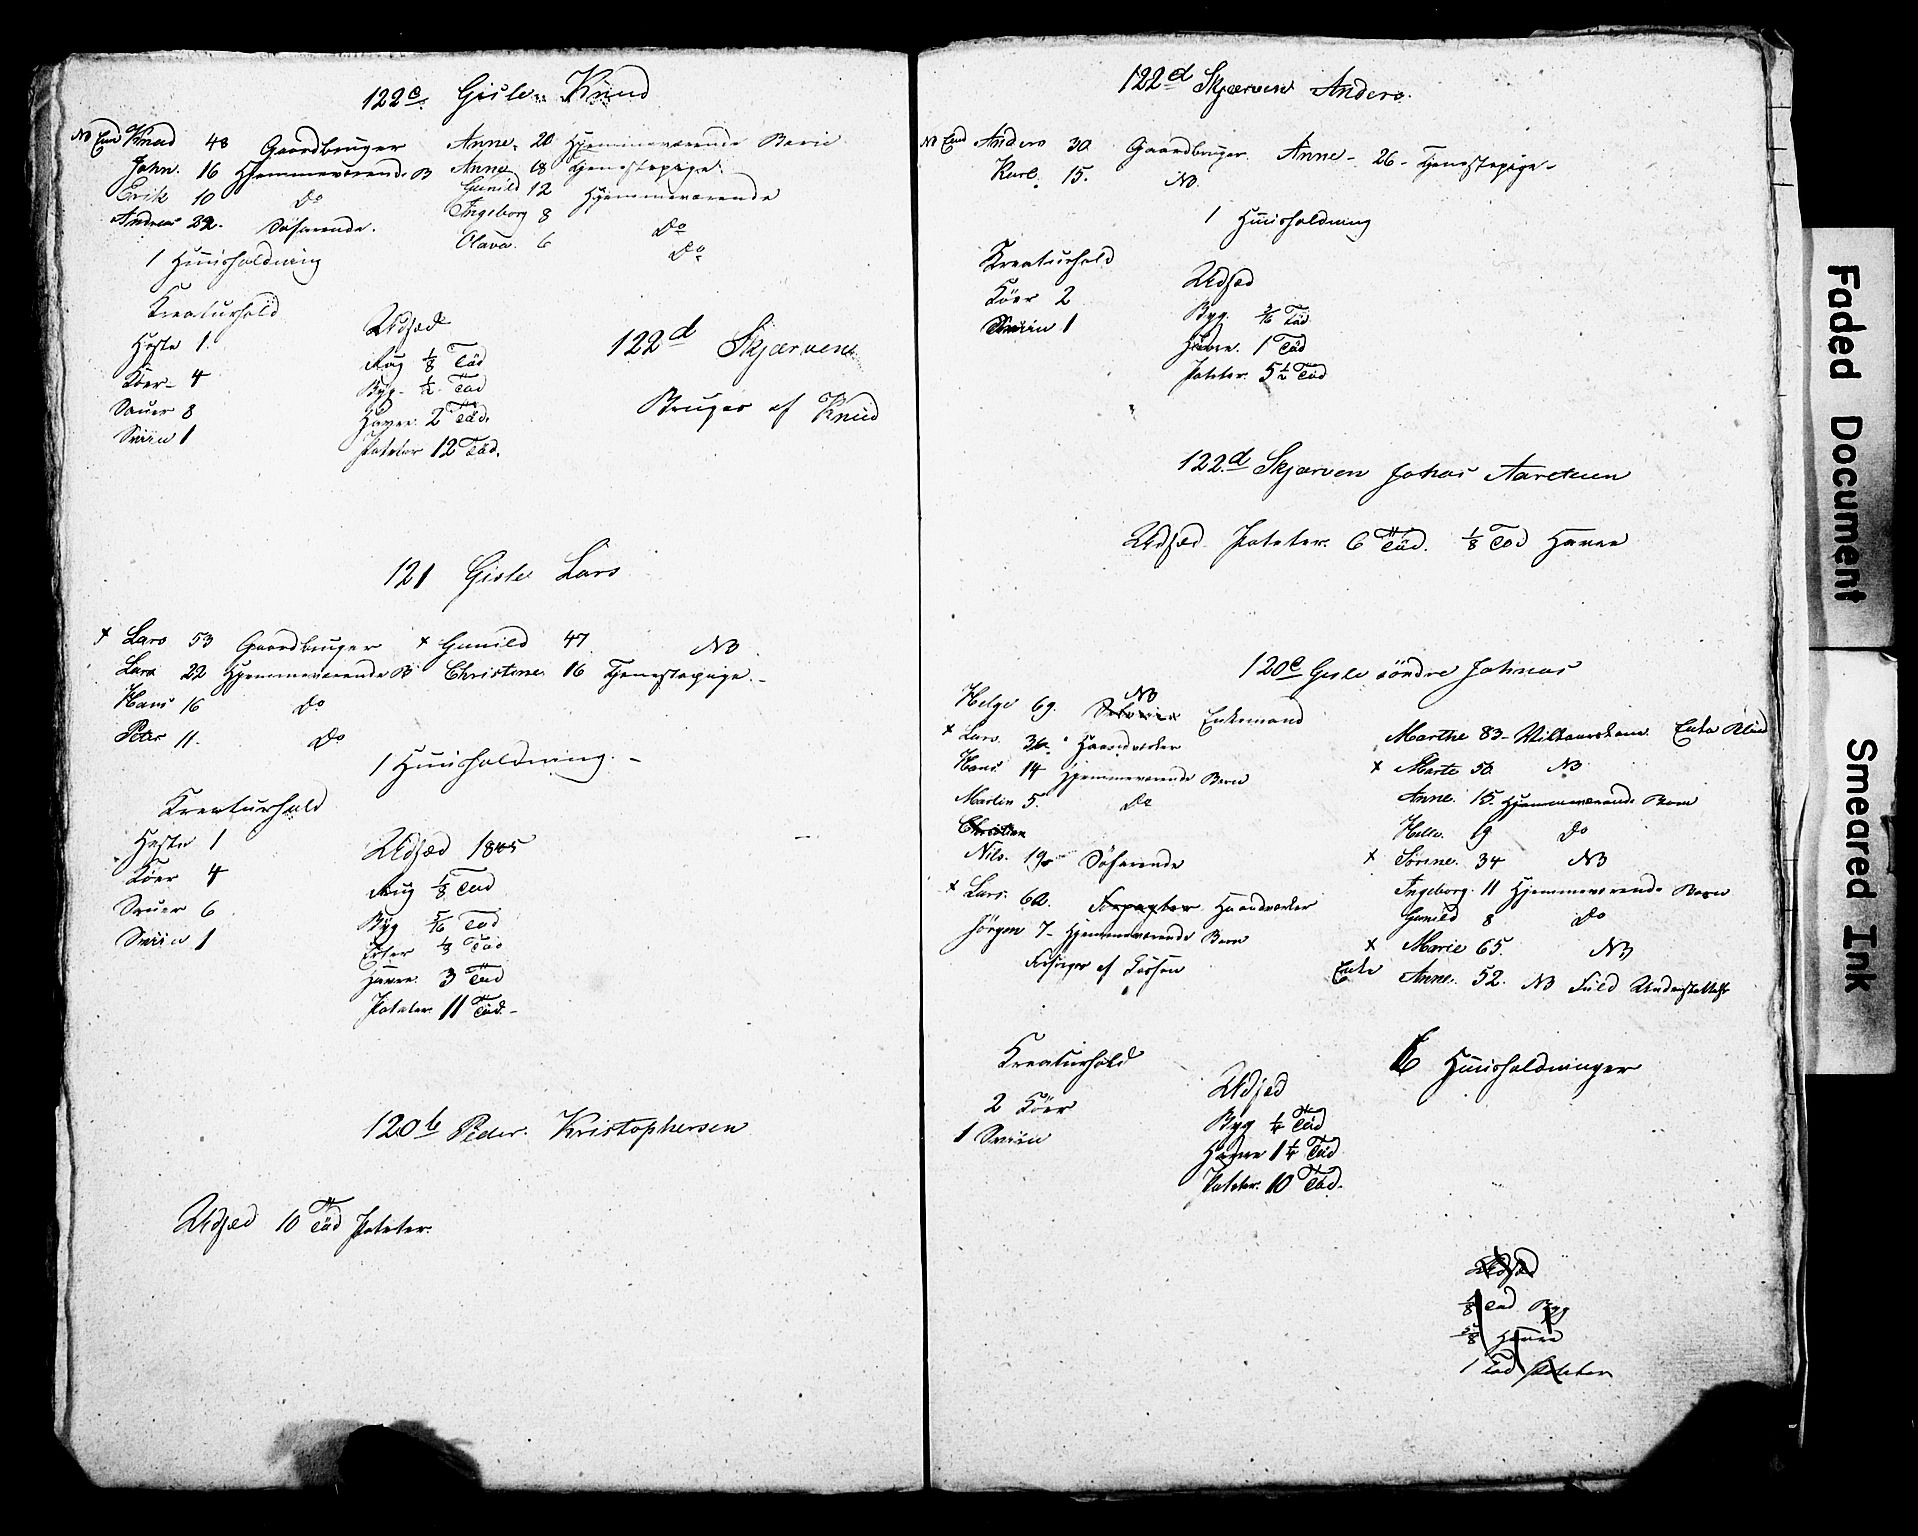 122c Gisle Knud
NB Em Knud 48 Gaardbruger Anne 20 Hjemmeværende Børn
John 16 Hjemmeværende B Anne 18 Tjenestepige
Erik 10 Do Gunild 12 Hjemmeværende
Andreas 22 Søfarende Ingeborg 8 Do
Olava 6 Do
1 Huusholdning
Kreaturhold
Heste 1
Köer 4
Sauer 8
Sviin 1
Udsæd
Rug 1/8 Töd
Byg 1/2 Töd
Havre 2 Tdr
Poteter 12 Töd.
122d Skjærven
Bruges af Knud
121 Gisle Lars
x Lars 53 Gaardbruger x Gunild 47 NB
Lars 22 Hjemmeværende B Christine 16 Tjenestepige
Hans 16 Do
Peter 11 Do
1 Huusholdning
Kreaturhold
Heste 1
Köer 4
Sauer 6
Sviin 1
Udsæd 1845
Rug 1/8 Töd
Byg 5/16 Töd
Erter 1/8 Töd
Havre 3 Töd
Poteter 11 Töd.
120b Peder Kristophersen
Udsæd 10 Töd Poteter
122d Skjærven Anders
NB Em Anders 30 Gaardbruger Anne 26 Tjenestepige
Karl 15. NB
1 Huusholdning
Kreaturhold
Köer 2
Sviin 1
Udsæd
Byg 3/16 Töd
Havre 1 Töd
Poteter 5 1/2 Töd
122d Skjærven Johas
Udsæd Poteter 6 Töd. 1/8 Töd Havre
120c Gisle söndre Johnas
Helge 69 NB Enkemand
x Lars Haandverker
Hans 14 Hjemmeværende Børn
Martin 5 Do
Christian
Nils 19 Söfarende
x Lars 62 Forpagter Haandverker
Jörgen 7 Hjemmeværende Børn
Marthe 83 Enke Blind
x Marte 50 NB
Anne 15 Hjemmeværende Børn
Helle 9 Do
x Sörine 34 NB
Ingeborg 11 Hjemmeværende Børn
Gunild 8 Do
x Marie 65 NB
Enke Anne 52 NB Fuld Understöttelse
Kreaturhold
2 Köer
1 Sviin
Udsæd
Byg 1/4 Töd
Havre 1 1/4 Töd
Poteter 10 Töd.
6 Huusholdninger
Udsæd
1/8 Töd Byg
5/8 Havre
1 Töd Poteter
Faded Document
Smeared Ink